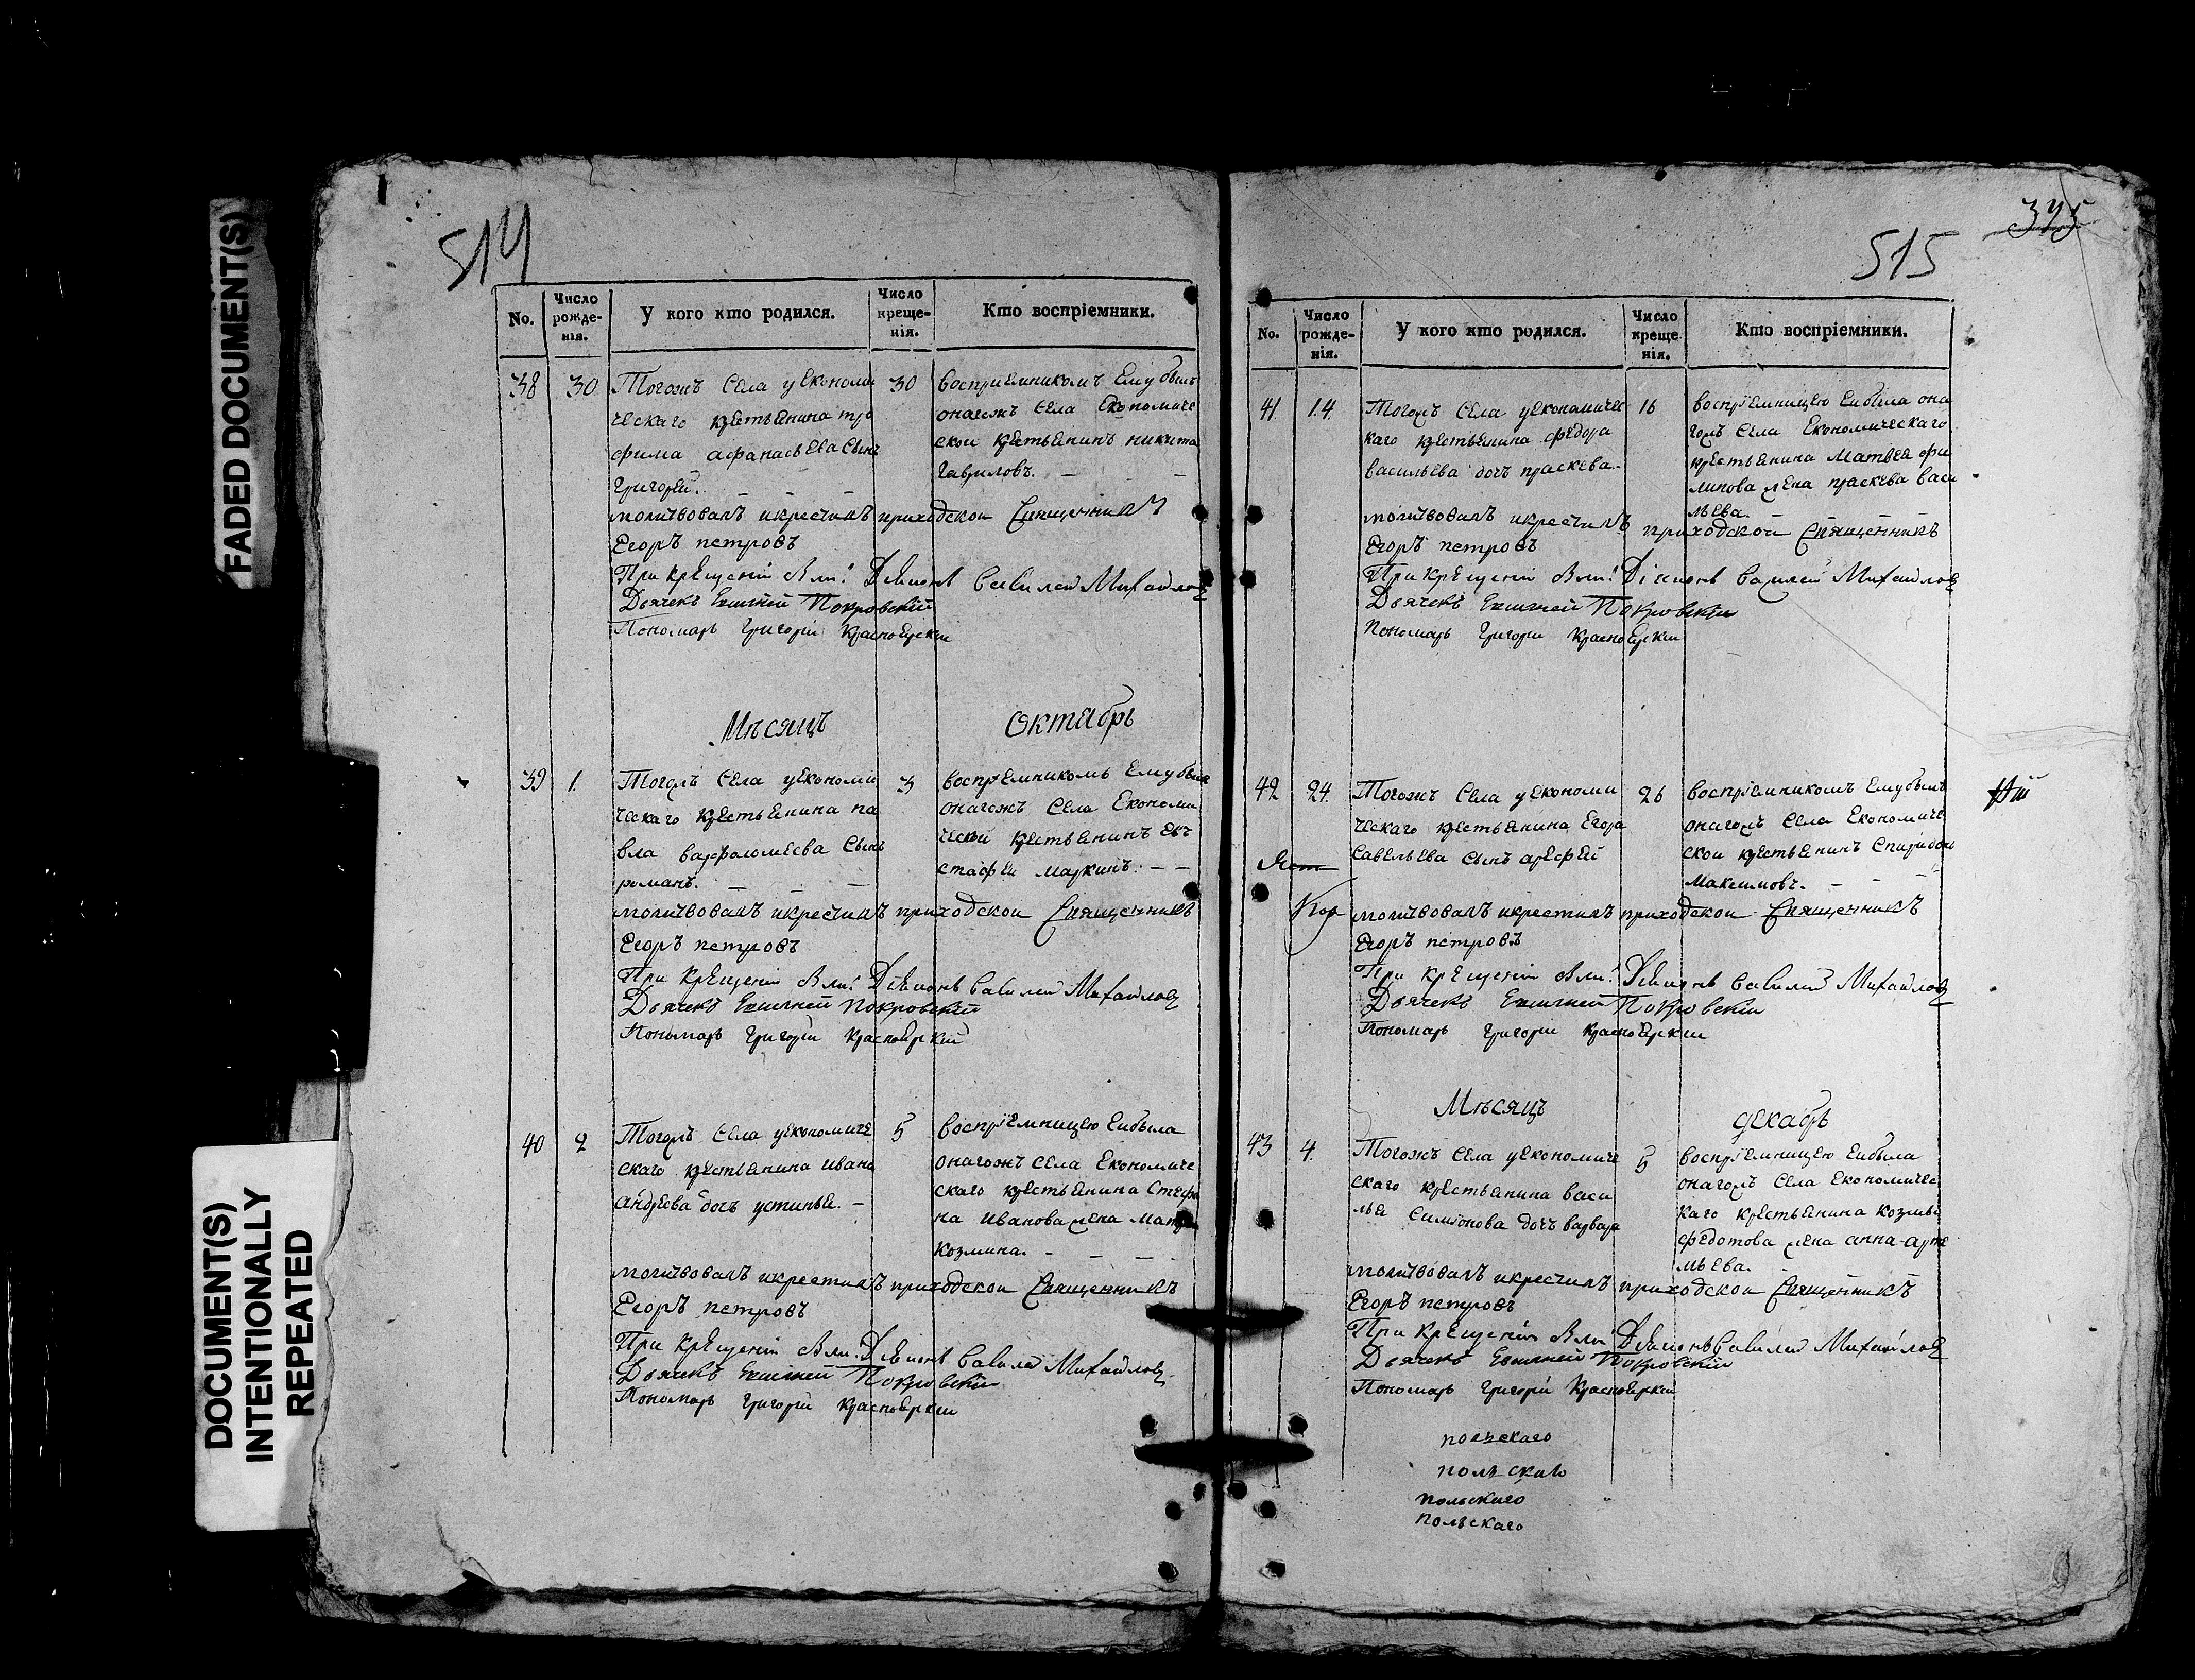 FADED DOCUMENT(S)
DOCUMENT(S)
INTENTIONALLY
REPEATED
514
No.
Число
рожде-
нія.
У кого кто родился.
Число
креще-
нія.
Кто воспріемники.
38
30
Тогожъ Села уЕкономи
ческаго крестьянина тро
фима афанасьева Сынъ
Григорей.
30
восприемникомъ Емубылъ
онагожъ Села Економиче
скои крестьянинъ никита
Гавриловъ.
молитвовалъ икрестилъ приходскои Священникъ
Егоръ петровъ
При крещеніи были: Діаконъ Василей Михайловъ
Дьячекъ Евигней Покровскій
Пономарь Григори Красноярскіи
Мѣсяцъ Октябрь
39
1.
Тогожъ Села уЕкономи
ческаго крестьянина па
вла варфоломеева Сынъ
романъ.
3
воспріемникомъ Емубылъ
онагожъ Села Економи
ческой крестьянинъ Евъ
стафеи маркинъ.
молитвовалъ икрестилъ приходскои Священникъ
Егоръ петровъ
При крещеніи были: Діаконъ Василей Михайловъ
Дьячекъ Евигней Покровскій
Пономарь Григори Красноярскій
40
2
Тогожъ Села уЕкономиче
скаго крестьянина ивана
андреева дочь устинья.
5
воспріемницею Ейбыла
онагожъ села Економиче
скаго крестьянина Стефа
на Иванова жена Матрена
Козмина.
молитвовалъ икрестилъ приходскои Священникъ
Егоръ петровъ
При крещеніи были: Діаконъ Василей Михайловъ
Дьячекъ Евигней Покровскіи
Пономарь Григори Красноярскіи
515
No.
Число
рожде-
нія.
У кого кто родился.
Число
креще
нія.
Кто воспріемники.
41
14.
Тогожъ Села уЕкономичес
каго крестьянина федора
васильева дочь праскева.
16
воспріемницею Ейбыла она
гожъ Села Економическаго
крестьянина Матвея фи
липова жена праскева васи
льева.
молитвовалъ икрестилъ приходскои Священникъ
Егоръ петровъ
При крещеніи были: Діаконъ Василей Михайловъ
Дьячекъ Евигней Покровскіи
Пономарь Григори Красноярскіи
42
24.
Тогожъ Села уЕкономи
ческаго крестьянина Егора
Савельева Сынъ арефей
26
воспріемникомъ Емубылъ
онагожъ Села Економиче
скои крестьянинъ Спиридонъ
Максимовъ.
молитвовалъ икрестилъ приходскои Священникъ
Егоръ петровъ
При крещеніи были: Діаконъ Василей Михайловъ
Дьячекъ Евигней Покровскіи
Пономарь Григори Красноярскіи
Мѣсяцъ декабрь
43
4.
Тогожъ Села уЕкономиче
скаго крестьянина васи
лья Симіонова дочь варвара
5
воспріемницею Ейбыла
онагожъ Села Економичес
каго крестьянина козмы
федотова жена анна-арте
мьева.
молитвовалъ икрестилъ приходскои Священникъ
Егоръ петровъ
При крещеніи были: Діаконъ Василей Михайловъ
Дьячекъ Евигней Покровскіи
Пономарь Григори Красноярскіи
польскаго
польскаго
польскаго
польскаго